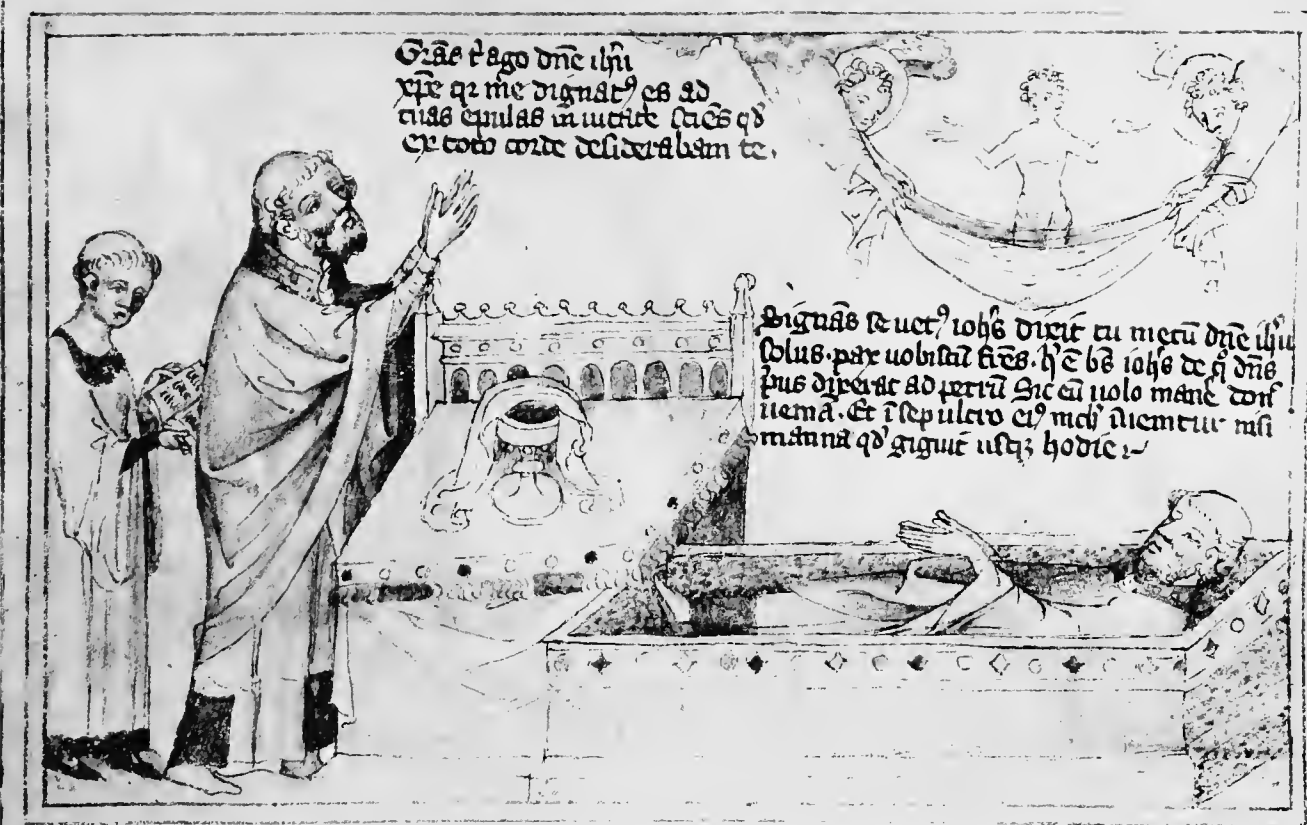 Grãs t̃ ago dñe ihũ
xp̃e qr me dignatꝰ es ad
tuas epulas in uitare sciẽs qđ
ex toto corde desiderabam te.
Signãs se uetꝰ iohs̃ dixit tu mecũ dñe ihũ
solus. pax uobiscũ fr̃es. h̓ ẽ bs̃ iohs̃ de q̊ dñs
p̓us dixerat ad petrũ Sic eũ uolo manẽ don̓
ueniã. Et ĩ sepulcro eiꝰ nich̓ ĩuenitur nisi
manna qđ gignit usqꝫ hodie